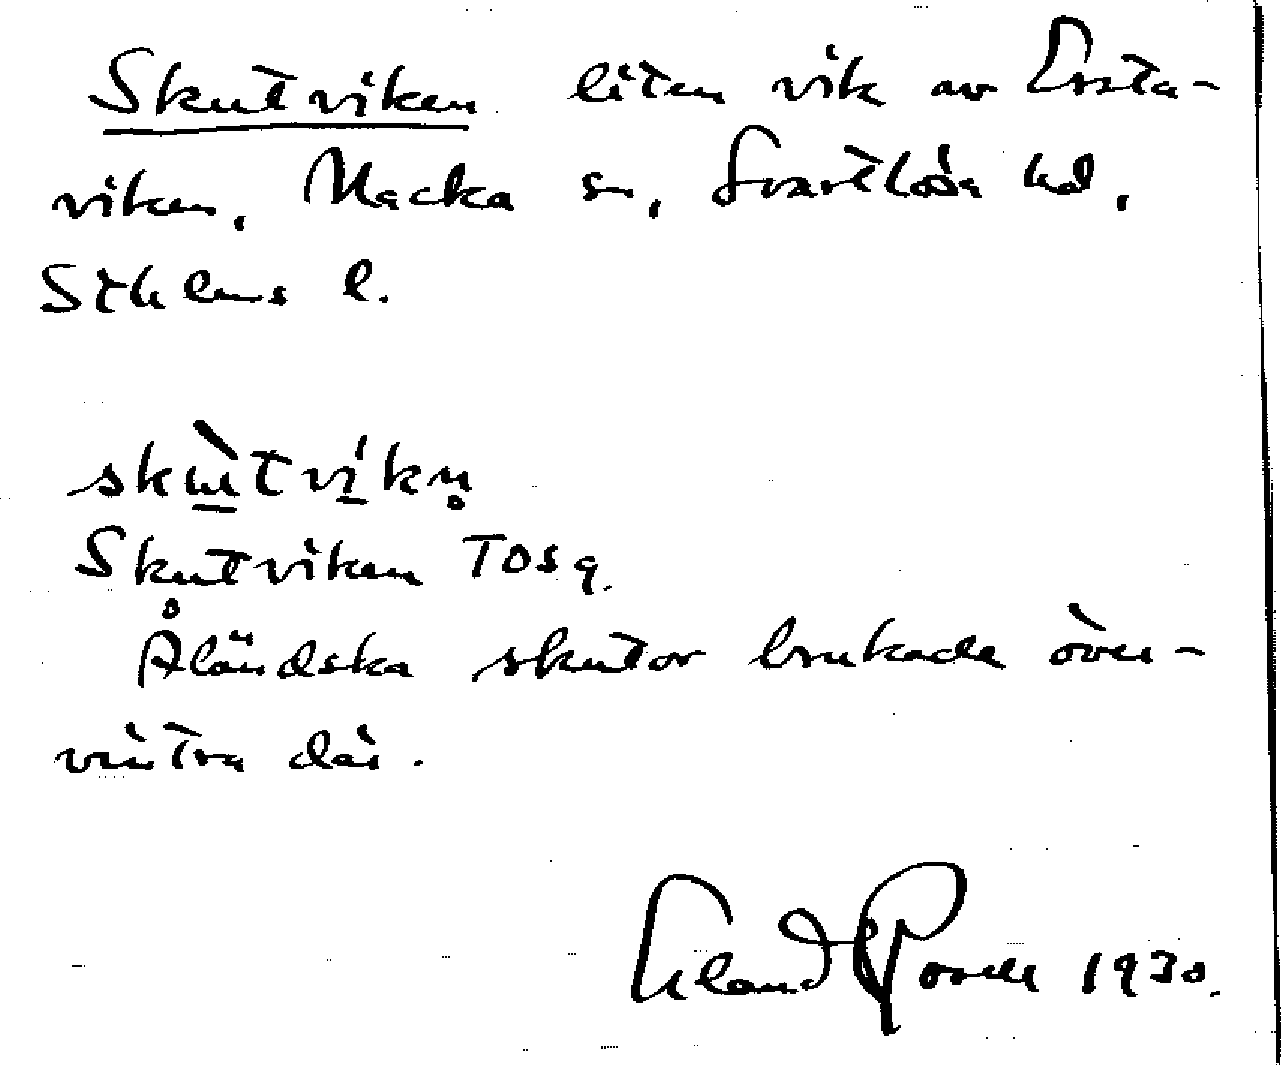 Skutviken liten vik av Ersta-
viken, Nacka sn, Svartlösa hd,
Sthlms l.
skùtvíkn̥
Skutviken TOSq.
Åländska skutor brukade över-
vintra där.
1930.